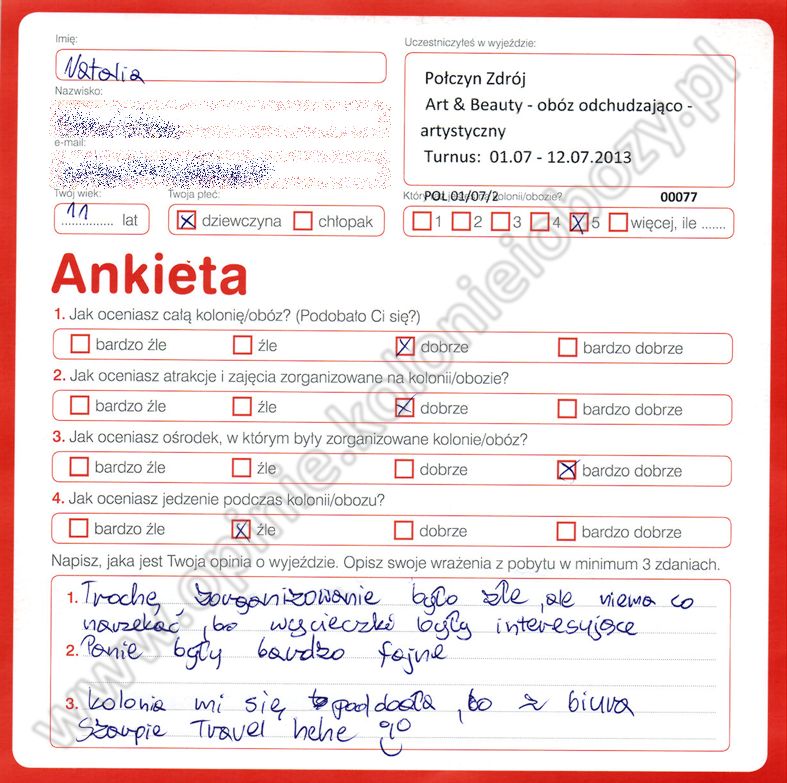 Imię:
Natalia
Nazwisko:
e-mail:
Twój wiek:
11 lat
Twoja płeć:
dziewczyna chłopak
Uczestniczyłeś w wyjeździe:
Połczyn Zdrój
Art & Beauty - obóz odchudzająco -
artystyczny
Turnus: 01.07 - 12.07.2013
POL 01/07/2 00077
1 2 3 4 5 więcej, ile .......
Ankieta
1. Jak oceniasz całą kolonię/obóz? (Podobało Ci się?)
bardzo źle źle dobrze bardzo dobrze
2. Jak oceniasz atrakcje i zajęcia zorganizowane na kolonii/obozie?
bardzo źle źle dobrze bardzo dobrze
3. Jak oceniasz ośrodek, w którym były zorganizowane kolonie/obóz?
bardzo źle źle dobrze bardzo dobrze
4. Jak oceniasz jedzenie podczas kolonii/obozu?
bardzo źle źle dobrze bardzo dobrze
Napisz, jaka jest Twoja opinia o wyjeździe. Opisz swoje wrażenia z pobytu w minimum 3 zdaniach.
1. Trochę zorganizowanie było złe, ale niema co
narzekać, bo wycieczki były interesujące
2. Panie były bardzo fajne
3. kolonia mi się poddobła, bo z biura
Szarpie Travel hehe
www.opinie.kolonieiobozy.pl